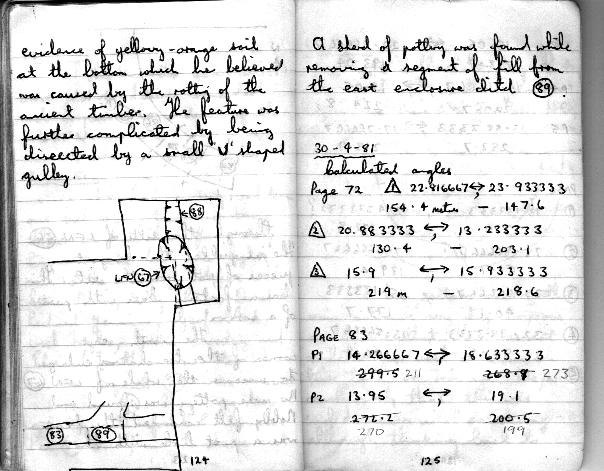 evidence of yellowy-orange soil
at the bottom which he believed
was caused by the rotting of the
ancient timber. The feature was
further complicated by being
disected by a small 'V' shaped
gulley.
88
67
83
89
124
A sherd of pottery was found while
removing a segment of fill from
the east enclosure ditch 89.
30-4-81
Calculated angles
Page 72 1 22.816667 ↔ 23.933333
154.4 metres - 147.6
2 20.883333 ↔ 13.233333
130.4 - 203.1
3 15.9 ↔ 15.933333
219 m - 218.6
PAGE 83
P1 14.266667 ↔ 18.633333
299.5 211 268.8 273
P2 13.95 ↔ 19.1
272.2 200.5
270 199
125